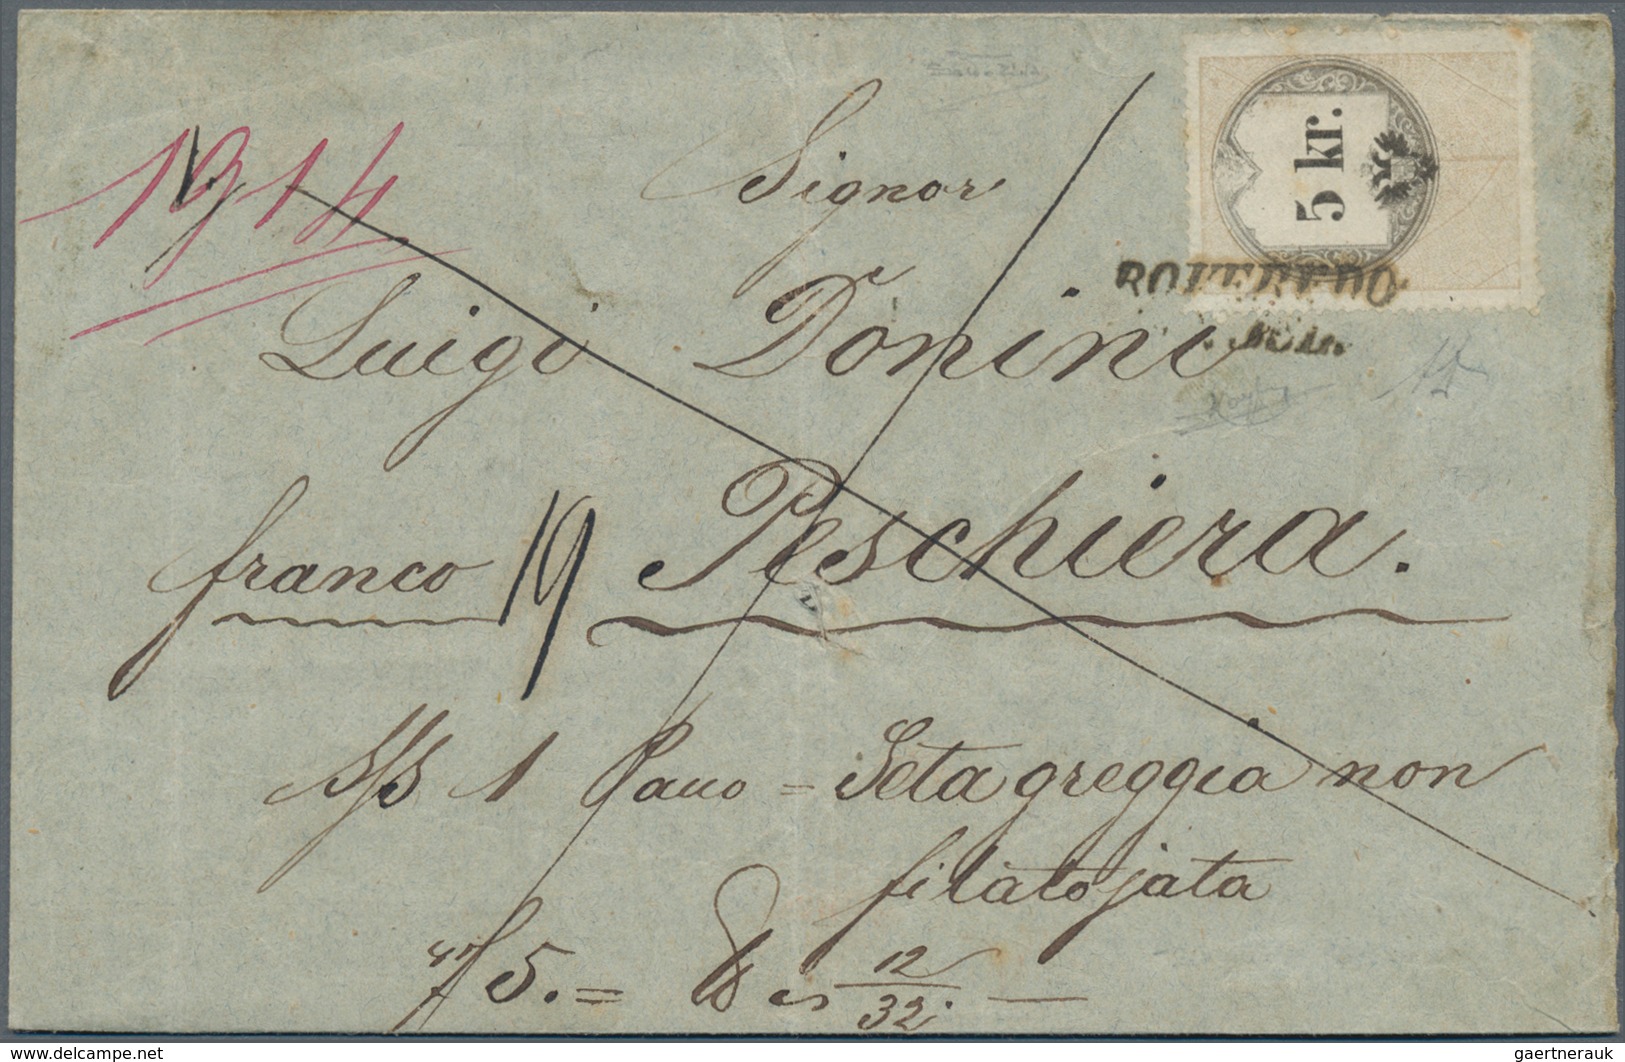 1914
Signor
5 kr.
ROVEREDO
Luigi Donini
franco 19 Peschiera.
1 Pacco = Seta greggia non
filatojata
5. =
12
32
www.delcampe.net
gaertnerauk